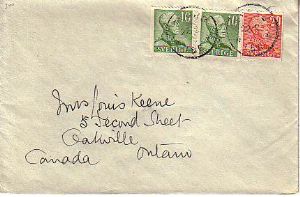 10 SVERIGE 10 SVERIGE
Mrs Louis Keene
5 Second Street
Oakville
Canada Ontario